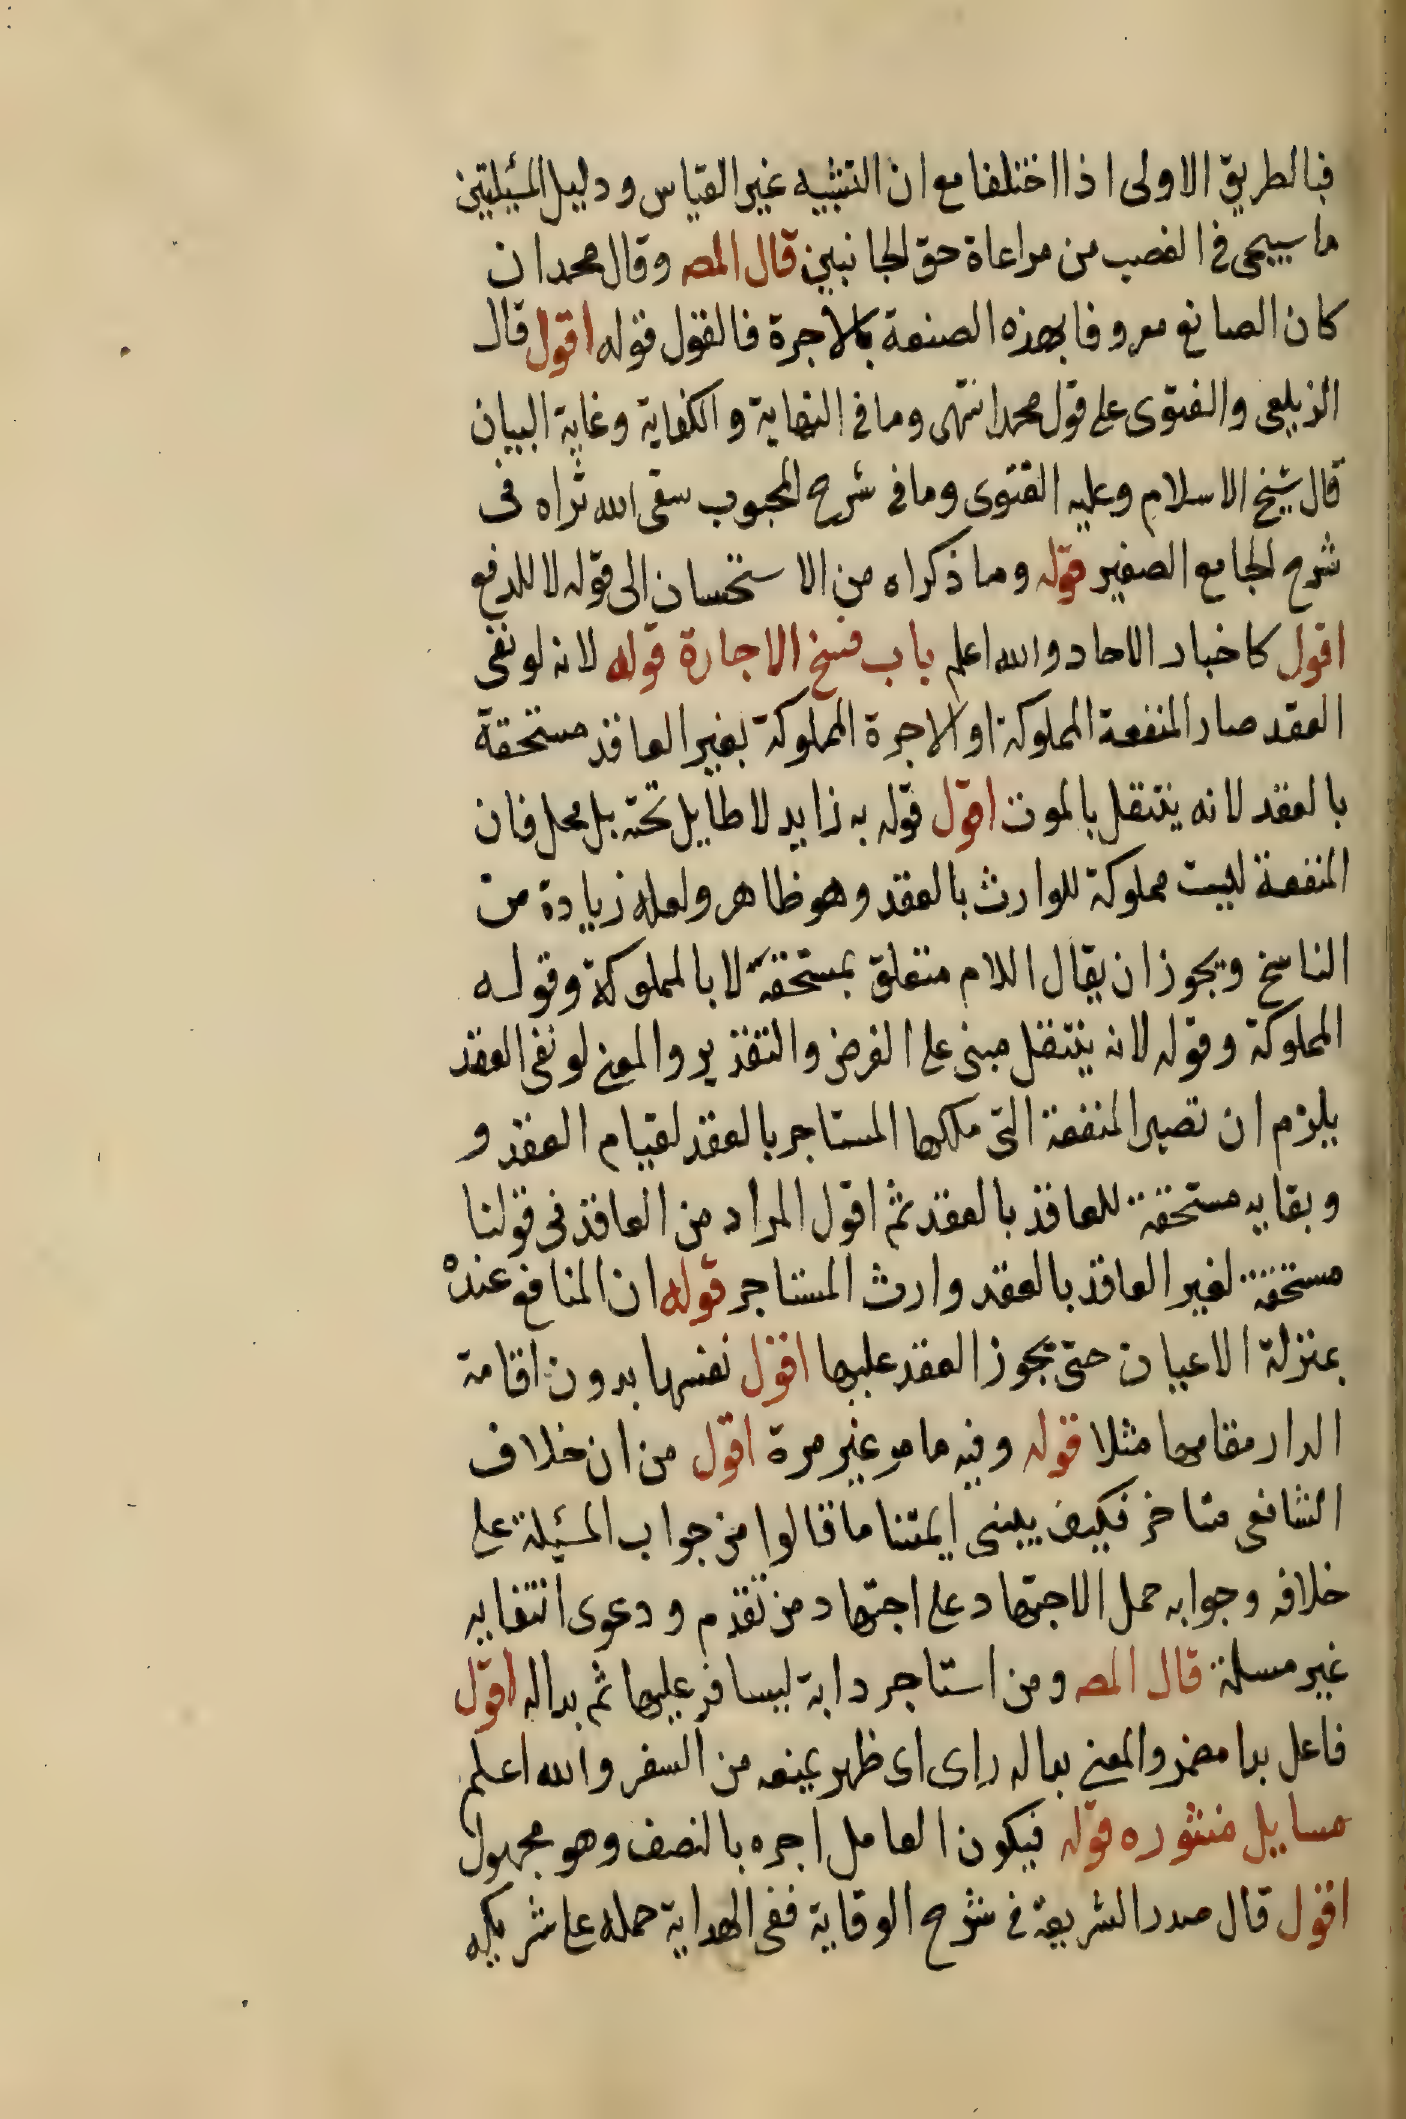 فبالطريق الاولى اذا اختلفا مع ان التشبيه غير القياس ودليل المسئلتين
ما سيجى فى الغصب من مراعاة حق الجانبين قال المص وقال محمد ان
كان الصانع معروفا بهذه الصنعة بالاجرة فالقول قوله اقول قال
الزيلعى والفتوى على قول محمد انتهى وما فى النهاية والكفاية وغاية البيان
قال شيخ الاسلام وعليه الفتوى وما فى شرح المحبوب سقى الله ثراه فى
شرح الجامع الصغير قوله وما ذكراه من الاستحسان الى قوله لا للدفع
اقول كاخبار الاحاد والله اعلم باب فسخ الاجارة قوله لانه لو نفى
العقد صار المنفعة المملوكة او الاجرة المملوكة لغير العاقد مستحقة
بالعقد لانه ينتقل بالموت اقول قوله به زايد لا طايل تحته بل محل فان
المنفعة ليست مملوكة للوارث بالعقد وهو ظاهر ولعله زيادة من
الناسخ ويجوز ان يقال اللام متعلق بمستحقة لا بالمملوكة وقوله
المملوكة وقوله لانه ينتقل مبنى على الفرض والتقدير والمعنى لو نفى العقد
يلزم ان تصير المنفعة التى ملكها المستاجر بالعقد لقيام العقد و
وبقايه مستحقة للعاقد بالعقد ثم اقول المراد من العاقد فى قولنا
مستحقة لغير العاقد بالعقد وارث المستاجر قوله ان المنافع عنده
بمنزلة الاعيان حتى يجوز العقد عليها اقول نفسها بدون اقامة
الدار مقامها مثلا قوله وفيه ما مر غير مرة اقول من ان خلاف
الشافعى متاخر فكيف يبنى ايمتنا ما قالوا من جواب المسئلة على
خلافه وجوابه حمل الاجتهاد على اجتهاد من تقدم ودعوى انتفايه
غير مسلمة قال المص ومن استاجر دابة ليسافر عليها ثم بدا له اقول
فاعل بدا مضمر والمعنى بدا له راى اى ظهر يمنعه من السفر والله اعلم
مسايل منثوره قوله فيكون العامل اجره بالنصف وهو مجهول
اقول قال صدر الشريعة فى شرح الوقاية ففى الهداية حمله على شريكيه